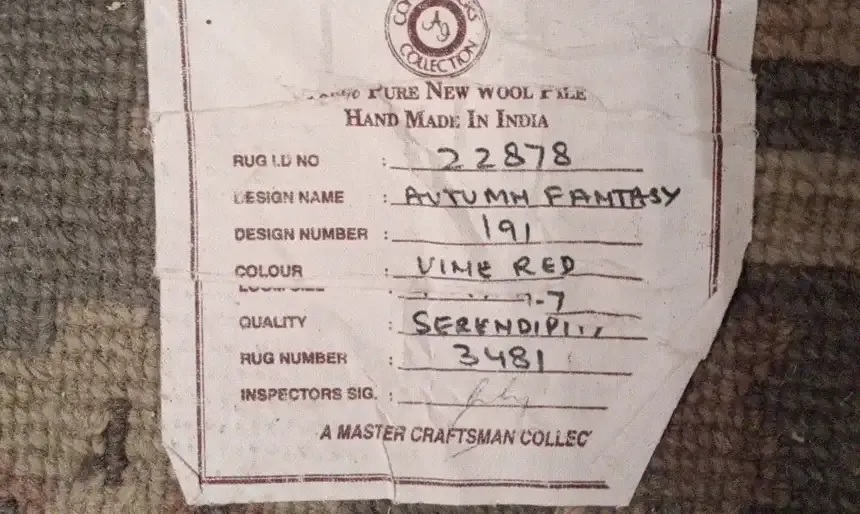 COLLECTION
PURE NEW WOOL PILE
HAND MADE IN INDIA
RUG I.D NO : 22878
DESIGN NAME : AUTUMN FANTASY
DESIGN NUMBER : 191
COLOUR : VINE RED
-7
QUALITY : SERENDIPI
RUG NUMBER : 3481
INSPECTORS SIG. :
A MASTER CRAFTSMAN COLLEC